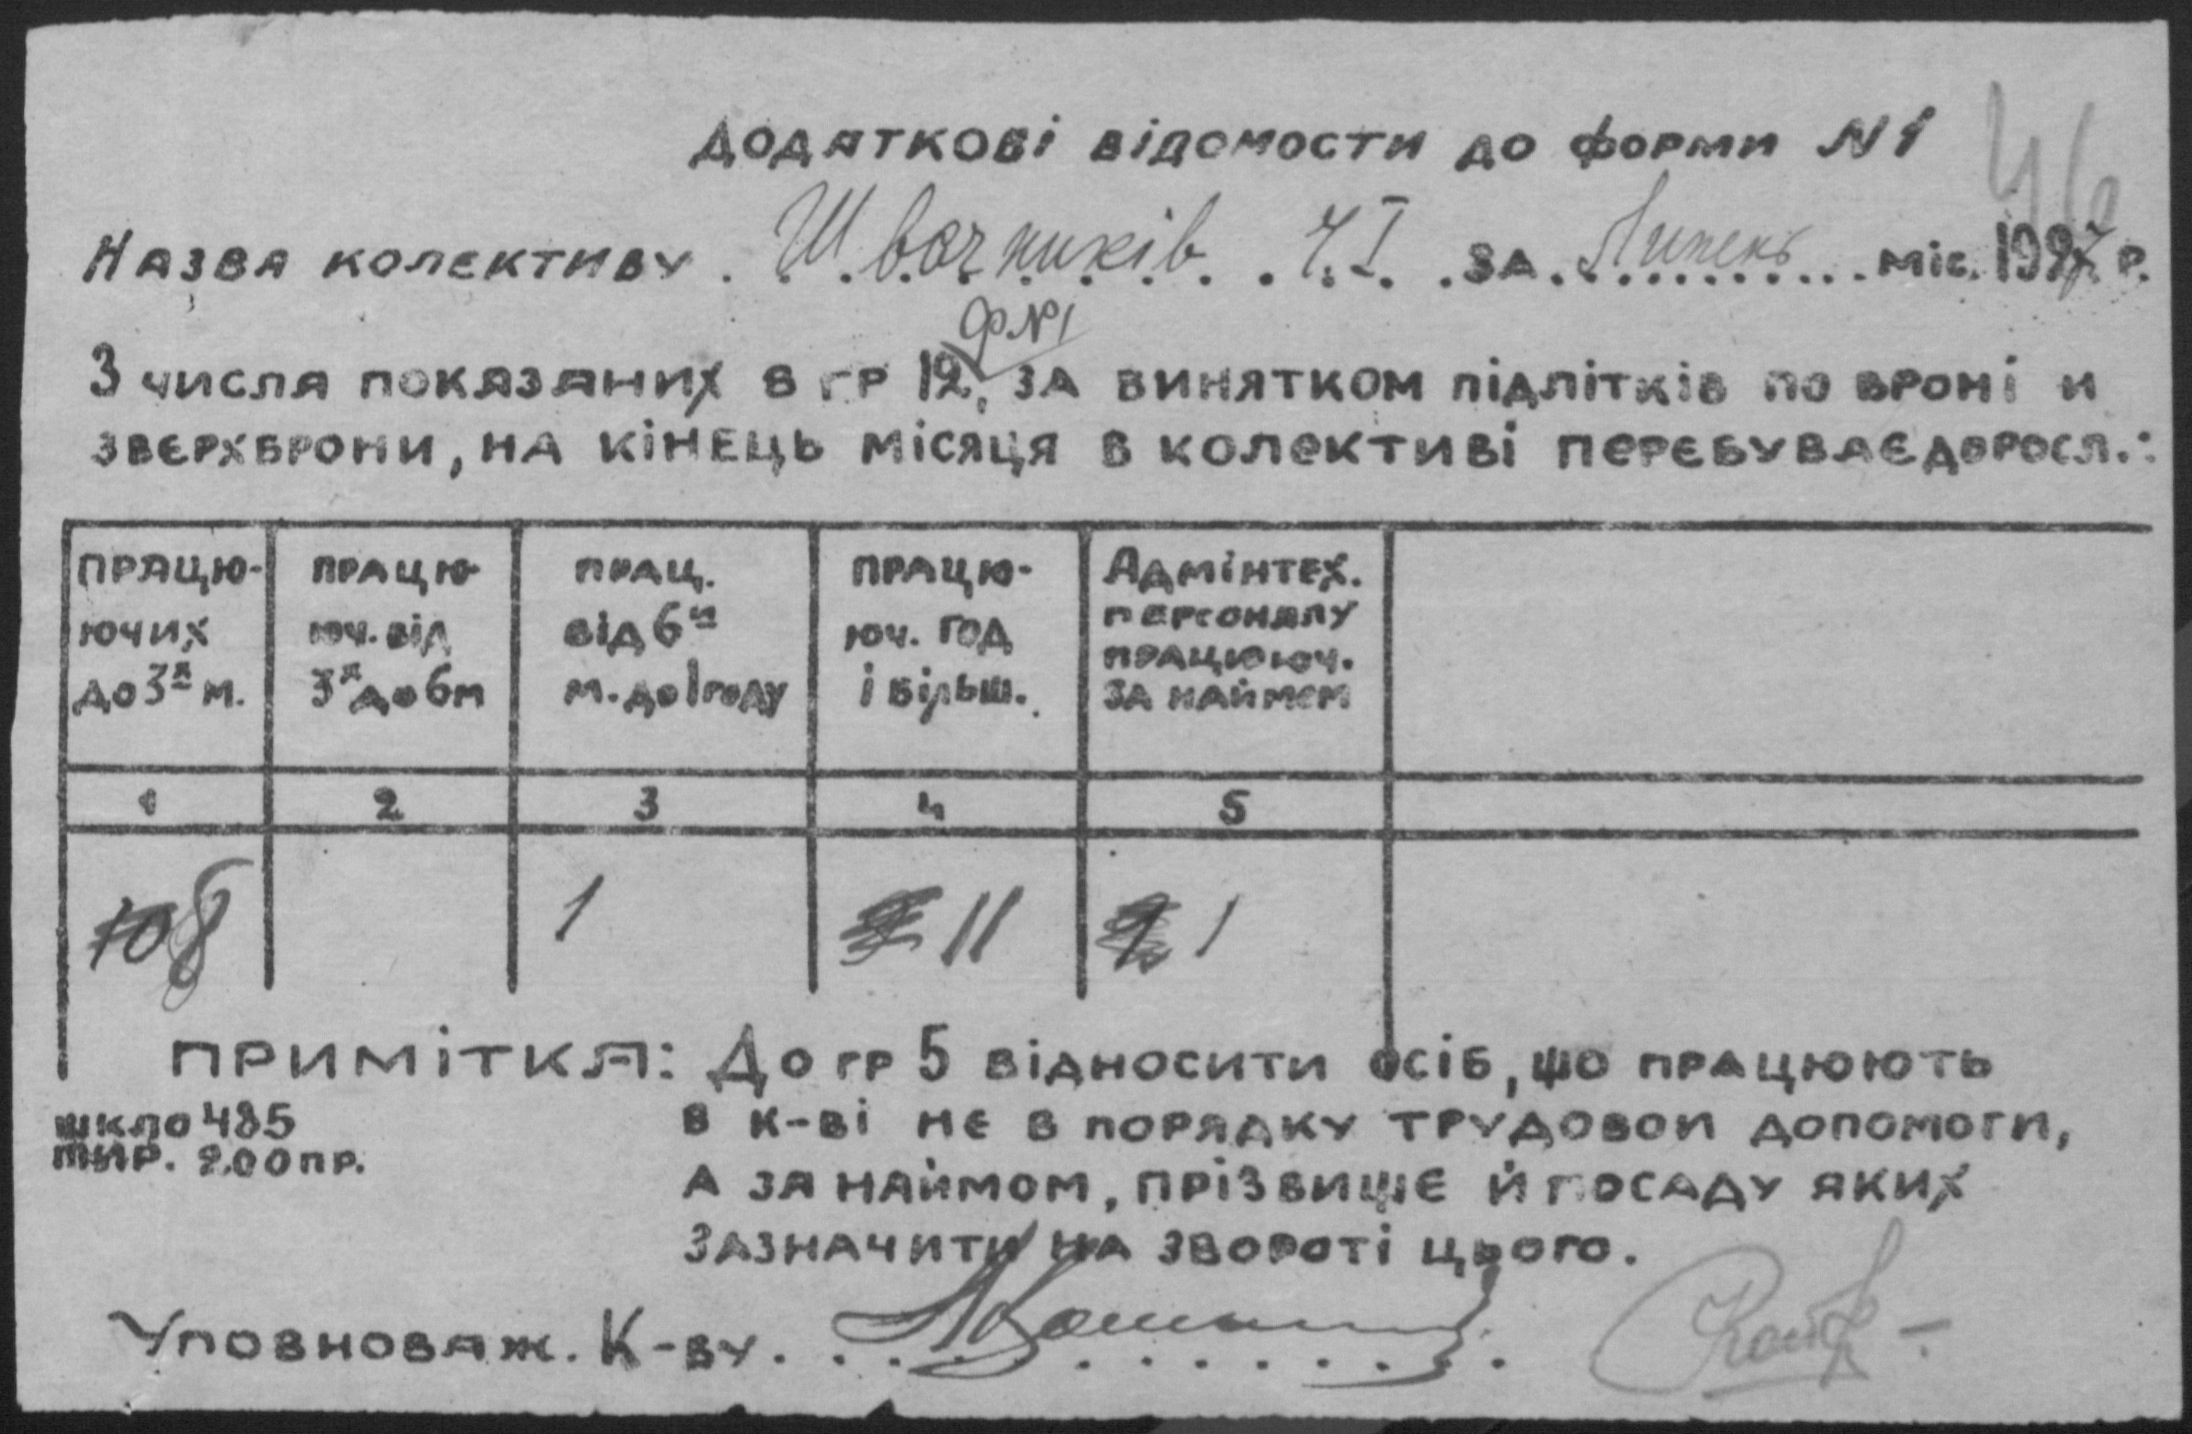 46
Додаткові відомости до форми №1
Назва колективу . Швачників Ч.I . за Липень міс. 1927 р.
Ф№1
З числа показаних в гр 12, за винятком підлітків по броні и
звєрхброни, на кінець місяця в колективі перебуває доросл.:
Працю- Працю- Прац. Працю- Адмінтех.
ючих юч. від від 6и юч. год персоналу
до 3х м. 3х до 6м м. до 1 году і більш. працююч. за наймом
1 2 3 4 5
8 1 11 1
Примітка: До гр 5 відносити осіб, що працюють
шкло 485 в к-ві не в порядку трудовои допомоги,
тир. 200 пр. а за наймом, прізвище й посаду яких
зазначити на звороті цього.
Уповноваж. К-ву.